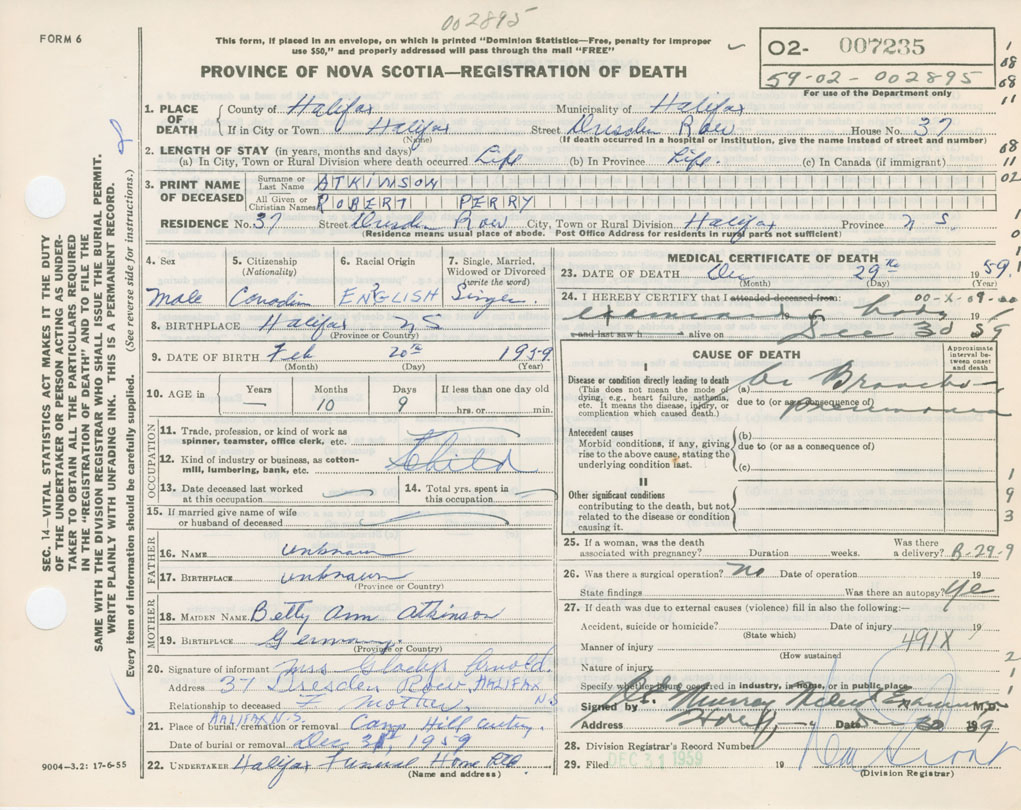 002895
FORM 6
This form, if placed in an envelope, on which is printed "Dominion Statistics—Free, penalty for improper
use $50," and properly addressed will pass through the mail "FREE"
PROVINCE OF NOVA SCOTIA—REGISTRATION OF DEATH
O2- 007235
59-02-002895
For use of the Department only
1. PLACE OF DEATH
County of Halifax Municipality of Halifax
If in City or Town Halifax Street Dresden Row House No. 37
(Name) (If death occurred in a hospital or institution, give the name instead of street and number)
2. LENGTH OF STAY (in years, months and days)
(a) In City, Town or Rural Division where death occurred Life (b) In Province Life. (c) In Canada (if immigrant)
3. PRINT NAME OF DECEASED
Surname or Last Name ATKINSON
All Given or Christian Names ROBERT PERRY
RESIDENCE No. 37 Street Dresden Row City, Town or Rural Division Halifax Province N S.
(Residence means usual place of abode. Post Office Address for residents in rural parts not sufficient)
4. Sex
Male
5. Citizenship
(Nationality)
Canadin
6. Racial Origin
ENGLISH
7. Single, Married, Widowed or Divorced
(write the word)
Single.
8. BIRTHPLACE Halifax NS
(Province or Country)
9. DATE OF BIRTH Feb 20th 1959
(Month) (Day) (Year)
10. AGE Years — Months 10 Days 9 If less than one day old
hrs. or min.
OCCUPATION
11. Trade, profession, or kind of work as spinner, teamster, office clerk, etc.
12. Kind of industry or business, as cotton-mill, lumbering, bank, etc.
Child
13. Date deceased last worked at this occupation
14. Total yrs. spent in this occupation
15. If married give name of wife or husband of deceased
FATHER
16. NAME unknown
17. BIRTHPLACE unknown
(Province or Country)
MOTHER
18. MAIDEN NAME Betty Ann Atkinson
19. BIRTHPLACE Germany.
(Province or Country)
20. Signature of informant Mrs Gladys Arnold.
Address 37 Dresden Row, HALIFAX N S
Relationship to deceased F mother,
HALIFAX N.S.
21. Place of burial, cremation or removal Camp Hill
Date of burial or removal Dec 31, 1959
22. UNDERTAKER Halifax Funeral Home Ltd
(Name and address)
9004-3.2: 17-6-55
MEDICAL CERTIFICATE OF DEATH
23. DATE OF DEATH Dec 29th 1959.
(Month) (Day) (Year)
24. I HEREBY CERTIFY that I attended deceased from:
examined body 19
and last saw h alive on Dec 30 59
CAUSE OF DEATH
Approximate interval between onset and death
I
Disease or condition directly leading to death
(This does not mean the mode of dying, e.g., heart failure, asthenia, etc. It means the disease, injury, or complication which caused death.)
(a) Broncho-
due to (or as a consequence of)
pneumonia
Antecedent causes
Morbid conditions, if any, giving rise to the above cause, stating the underlying condition last.
(b)
due to (or as a consequence of)
(c)
II
Other significant conditions
contributing to the death, but not related to the disease or condition causing it.
25. If a woman, was the death associated with pregnancy? Duration weeks. Was there a delivery? B-29-9
26. Was there a surgical operation? No Date of operation 19
State findings Was there an autopsy? Ye
27. If death was due to external causes (violence) fill in also the following:—
Accident, suicide or homicide? Date of injury 19
(State which)
Manner of injury 491X
(How sustained
Nature of injury
Specify whether injury occurred in industry, in home, or in public place
Signed by M.D.
Address Date 30 19 59
28. Division Registrar's Record Number
29. Filed DEC 31 1959 19
(Division Registrar)
SEC. 14—VITAL STATISTICS ACT MAKES IT THE DUTY
OF THE UNDERTAKER OR PERSON ACTING AS UNDER-
TAKER TO OBTAIN ALL THE PARTICULARS REQUIRED
IN THE "REGISTRATION OF DEATH" AND FILE THE
SAME WITH THE DIVISION REGISTRAR WHO SHALL ISSUE THE BURIAL PERMIT.
WRITE PLAINLY WITH UNFADING INK. THIS IS A PERMANENT RECORD.
Every item of information should be carefully supplied. (See reverse side for instructions.)